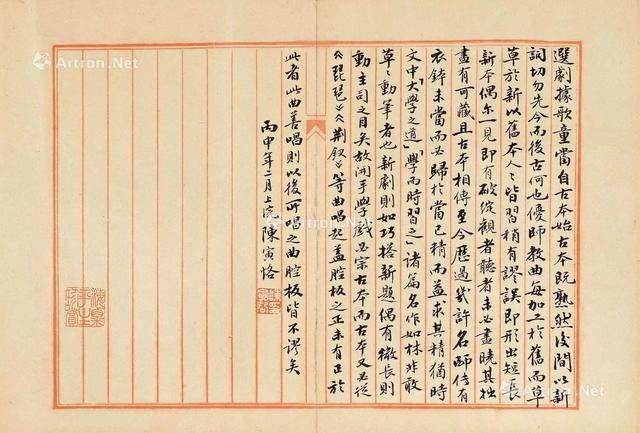 選劇據歌童當自古本始古本既熟然後間以新
詞切勿先今而後古何也優師教曲每加工於舊而草
草於新以舊本人〻皆習稍有謬誤即形出短長
新本偶尔一見即有破綻觀者聽者未必盡曉其拙
盡有可藏且古本相傳至今歷過幾許名師傳有
衣鉢未當而必歸於當已精而益求其精猶時
文中「大學之道」「學而時習之」諸篇名作如林非敢
草〻動筆者也新劇則如巧搭新題偶有微長則
動主司之目矣故開手學戲必宗古本而古本又必從
《琵琶》《荆釵》等曲唱起蓋腔板之正未有正於
此者此曲善唱則以後所唱之曲腔板皆不謬矣
丙申年二月上浣陳寅恪
Artron.Net
Artron.Net
Artron.Net
Artron.Net